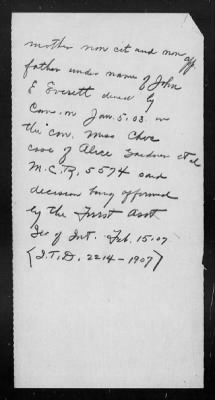 mother non cit and non app
father under name of John
E Everett denied by
Com. on Jan. 5. 03. in
the con. Miss. Choc
case of Alice Gardner et al
M.C.R. 5574 said
decision being affirmed
by the First Asst
Sec of Int. Feb. 15-07
(I.T.D. 2214-1907)